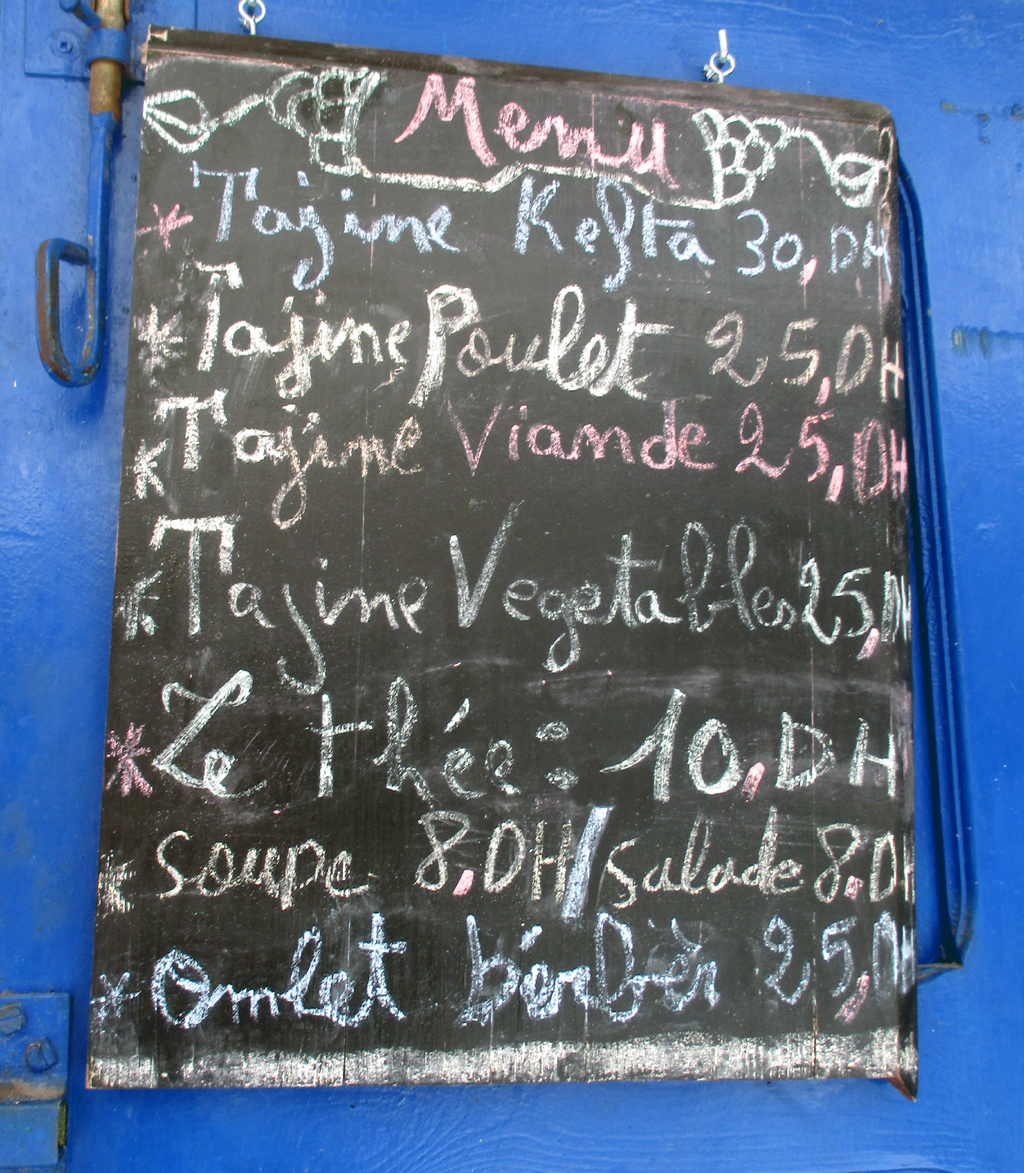 Menu
* Tajine Kefta 30,DH
* Tajine Poulet 25,DH
* Tajine Viande 25,DH
* Tajine Vegetables 25,DH
* Le thée : 10,DH
* soupe 8,DH/salade 8,DH
* omlet bérbèr 25,D